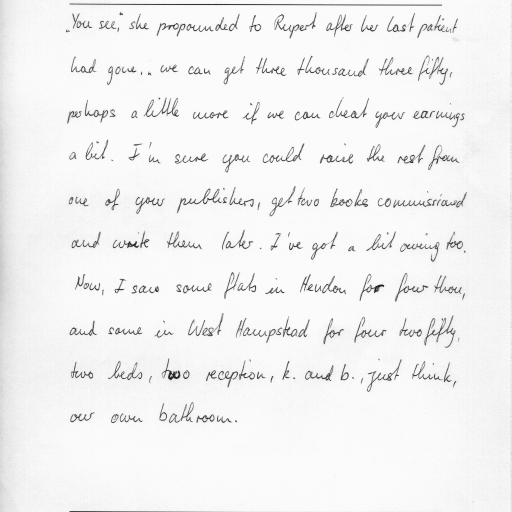 „You see," she propounded to Rupert after her last patient
had gone, „ we can get three thousand three fifty,
perhaps a little more if we can cheat your earnings
a bit. I'm sure you could raise the rest from
one of your publishers, get two books commissioned
and write them later. I've got a bit owing too.
Now, I saw some flats in Hendon for four thou,
and some in West Hampstead for four two fifty,
two beds, two reception, k. and b., just think,
our own bathroom.